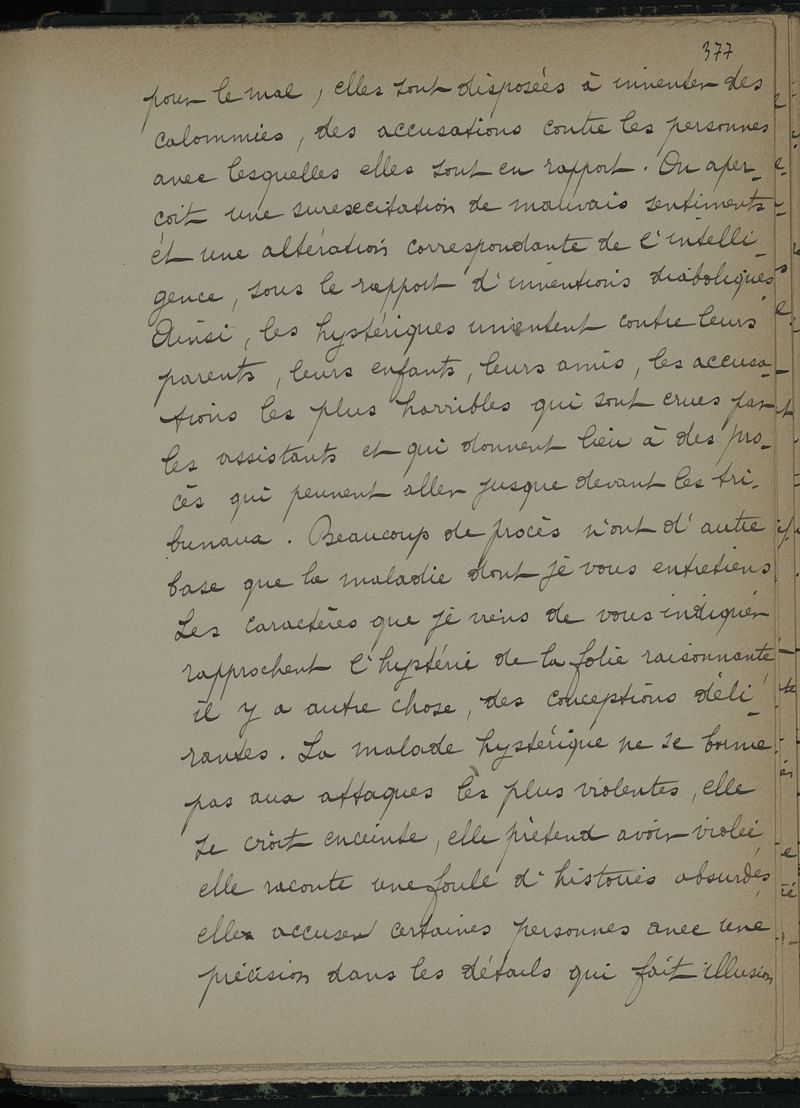 377
pour le mal, elles sont disposées à inventer des
calomnies, des accusations contre les personnes
avec lesquelles elles sont en rapport. On aper-
çoit une surexcitation de mauvais sentiments
et une altération correspondante de l'intelli-
gence, sous le rapport d'inventions diaboliques
Ainsi, les hystériques inventent contre leurs
parents, leurs enfants, leurs amis, les accusa-
tions les plus horribles qui sont crues par
les assistants et qui donnent lieu à des pro-
cès qui peuvent aller jusque devant les tri-
bunaux. Beaucoup de procès n'ont d'autre
base que la maladie dont je vous entretiens
Les caractères que je viens de vous indiquer
rapprochent l'hystérie de la folie raisonnante
il y a autre chose, des conceptions déli-
rantes. La malade hystérique ne se borne
pas aux attaques les plus violentes, elle
se croit enceinte, elle prétend avoir violée,
elle raconte une foule d'histoires absurdes
elle accuser certaines personnes avec une
précision dans les détails qui fait illusion